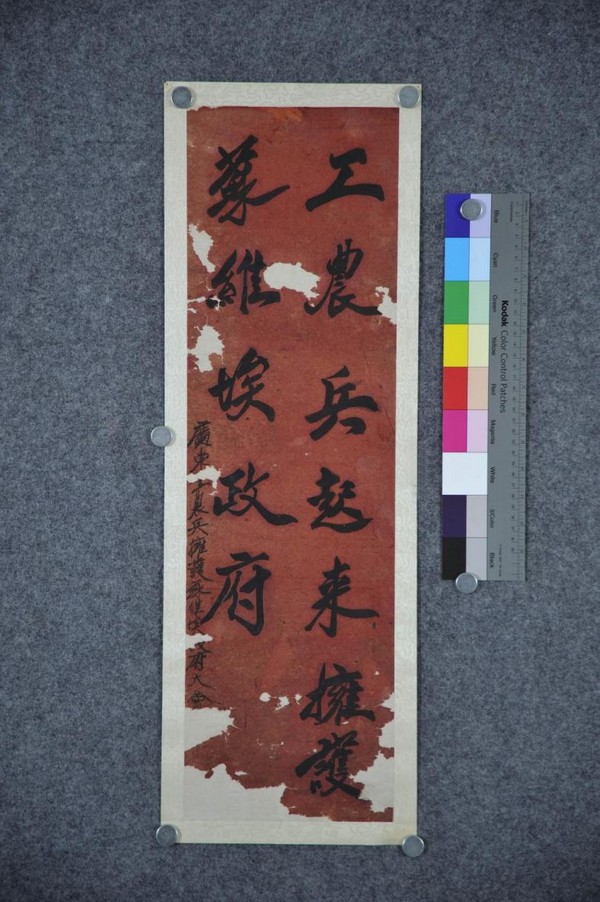 工農兵起来擁護
蘇維埃政府
廣東工農兵擁護蘇維埃政府大会
Kodak Color Control Patches
Blue
Cyan
Green
Yellow
Red
Magenta
White
3/Color
Black